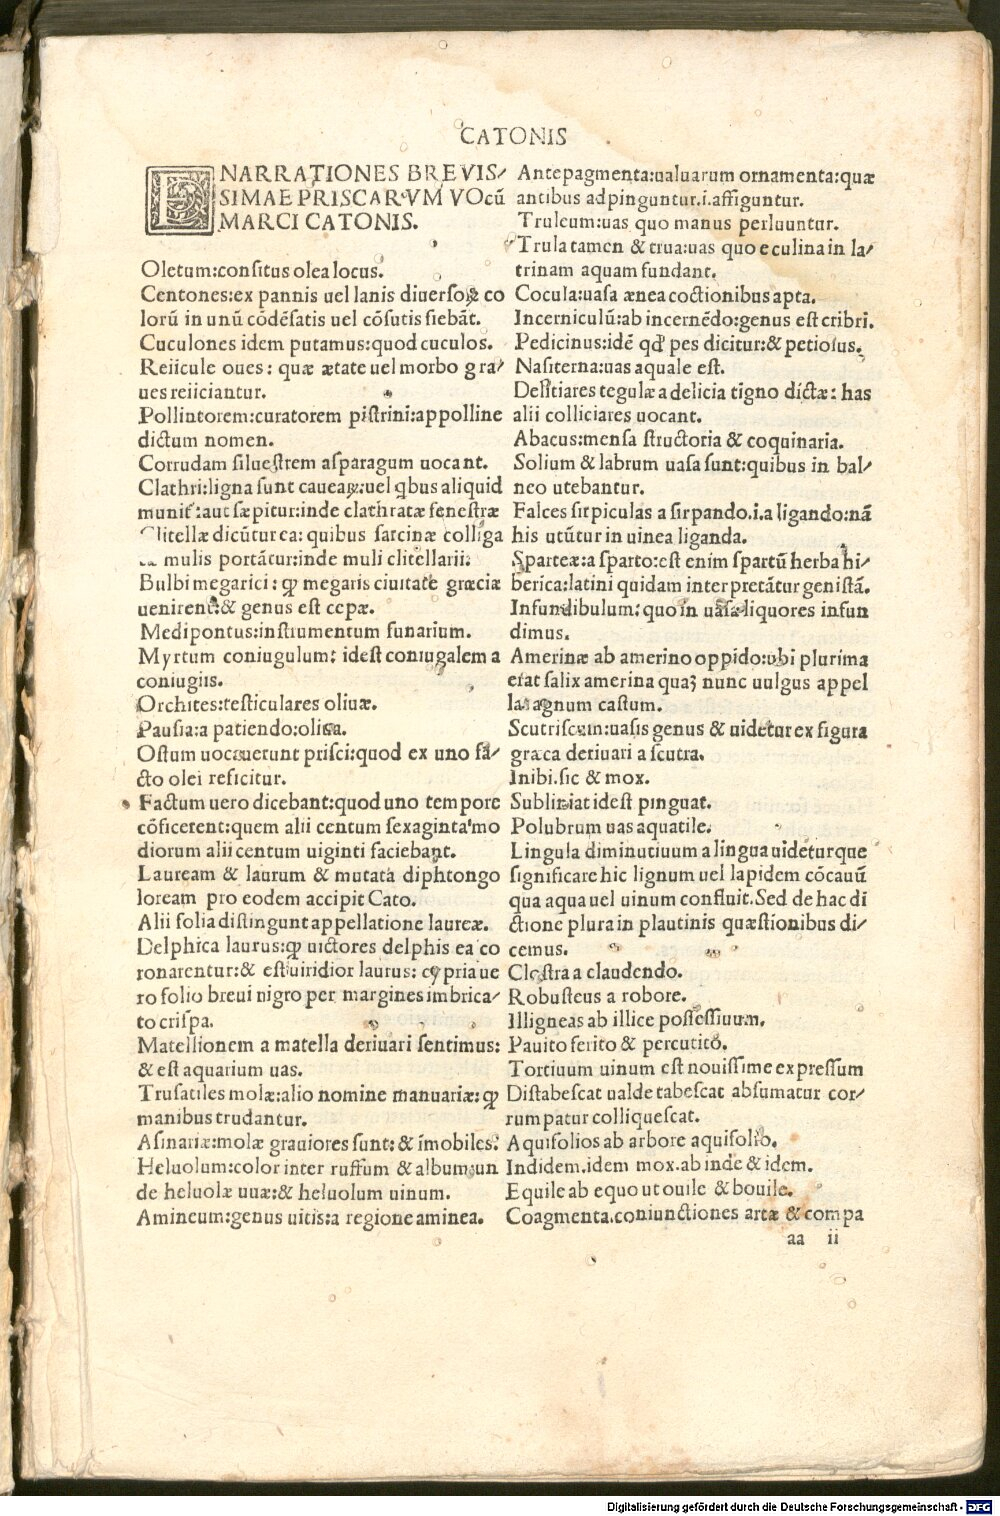 CATONIS
ENARRATIONES BREVIS/
SIMAE PRISCARVM VOcũ
MARCI CATONIS.
Oletum:consitus olea locus.
Centones:ex pannis uel lanis diuersoꝝ co
lorũ in unũ cõdẽsatis uel cõsutis fiebãt.
Cuculones idem putamus:quod cuculos.
Reiicule oues: quæ ætate uel morbo gra/
ues reiiciantur.
Pollintorem:curatorem pistrini:appolline
dictum nomen.
Corrudam siluestrem asparagum uocant.
Clathri:ligna sunt caueaꝝ:uel ꝗbus aliquid
munit᷑:aut sæpitur:inde clathratæ fenestræ
Clitellæ dicũtur ea: quibus sarcinæ colliga
mulis portãtur:inde muli clitellarii.
Bulbi megarici: ꝙ megaris ciuitate græciæ
uenirent:& genus est cepæ.
Medipontus:instrumentum funarium.
Myrtum coniugulum: idest coniugalem a
coniugiis.
Orchites:testiculares oliuæ.
Pausia:a patiendo:oliua.
Ostum uocauerunt prisci:quod ex uno fa/
cto olei reficitur.
Factum uero dicebant:quod uno tempore
cõficerent:quem alii centum sexaginta mo
diorum alii centum uiginti faciebant.
Lauream & laurum & mutata diphtongo
loream pro eodem accipit Cato.
Alii folia distingunt appellatione laureæ.
Delphica laurus:ꝙ uictores delphis ea co
ronarentur:& est uiridior laurus: cypria ue
ro folio breui nigro per margines imbrica/
to crispa.
Matellionem a matella deriuari sentimus:
& est aquarium uas.
Trusatiles molæ:alio nomine manuariæ:ꝙ
manibus trudantur.
Asinariæ:molæ grauiores sunt: & ĩmobiles.
Heluolum:color inter ruffum & album:un
de heluolæ uuæ:& heluolum uinum.
Amineum:genus uitis:a regione aminea.
Antepagmenta:ualuarum ornamenta:quæ
antibus adpinguntur.i.affiguntur.
Truleum:uas quo manus perluuntur.
Trula tamen & trua:uas quo e culina in la/
trinam aquam fundant.
Cocula:uasa ænea coctionibus apta.
Incerniculũ:ab incernẽdo:genus est cribri.
Pedicinus:idẽ qđ pes dicitur:& petiolus.
Nasiterna:uas aquale est.
Delitiares tegulæ a delicia tigno dictæ: has
alii colliciares uocant.
Abacus:mensa structoria & coquinaria.
Solium & labrum uasa sunt:quibus in bal/
neo utebantur.
Falces sirpiculas a sirpando.i.a ligando:nã
his utũtur in uinea liganda.
Sparteæ:a sparto:est enim spartũ herba hi/
berica:latini quidam interpretãtur genistã.
Infundibulum: quo in uasa liquores infun
dimus.
Amerinæ ab amerino oppido:ubi plurima
erat salix amerina quaꝫ nunc uulgus appel
lat agnum castum.
Scutriscum:uasis genus & uidetur ex figura
græca deriuari a scutra.
Inibi.sic & mox.
Subliniat idest pinguat.
Polubrum uas aquatile.
Lingula diminutiuum a lingua uidetur que
significare hic lignum uel lapidem cõcauũ
qua aqua uel uinum confluit.Sed de hac di
ctione plura in plautinis quæstionibus di/
cemus.
Clostra a claudendo.
Robusteus a robore.
Illigneas ab illice possessiuum.
Pauito ferito & percutito.
Tortiuum uinum est nouissime expressum
Distabescat ualde tabescat absumatur cor/
rumpatur colliquescat.
Aquifolios ab arbore aquifolio.
Indidem.idem mox.ab inde & idem.
Equile ab equo ut ouile & bouile.
Coagmenta.coniunctiones artæ & compa
aa ii
Digitalisierung gefördert durch die Deutsche Forschungsgemeinschaft - DFG